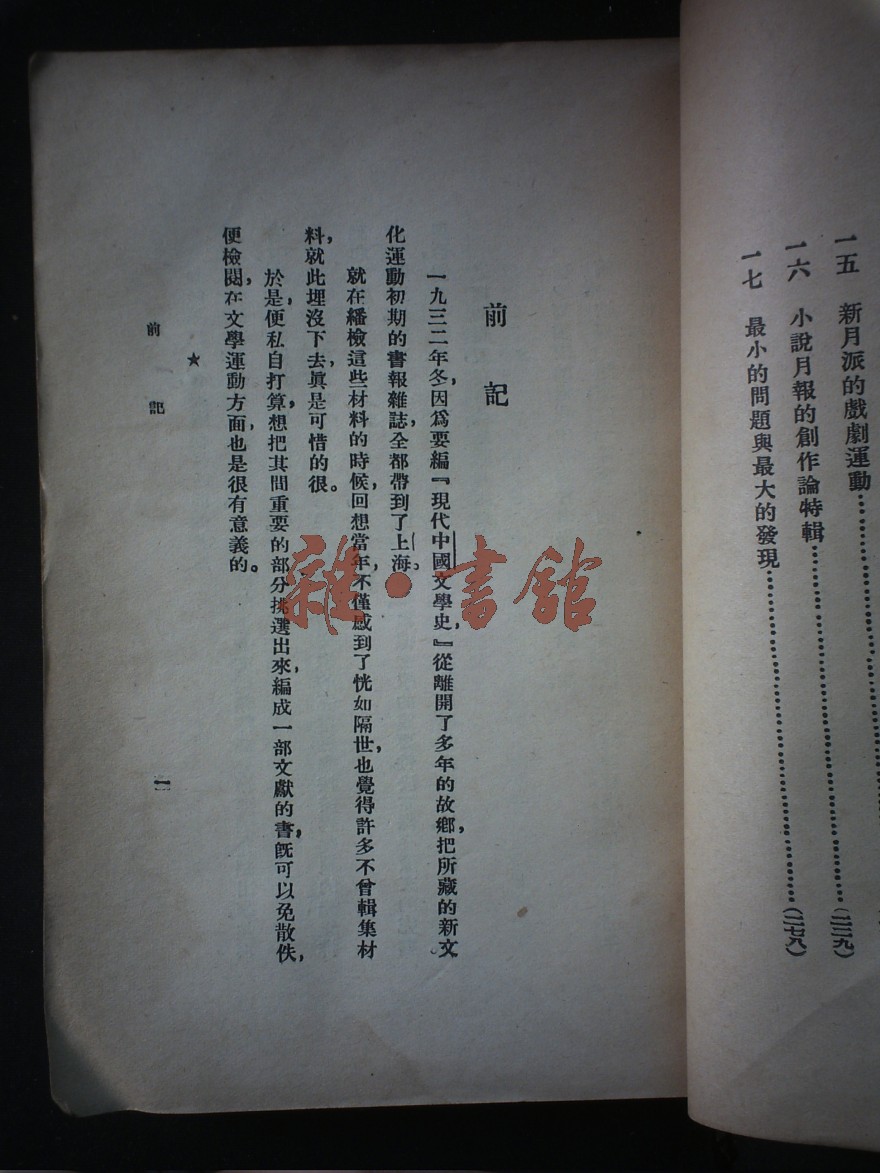 一五 新月派的戲劇運動……
一六 小說月報的創作論特輯……
一七 最小的問題與最大的發現……(二七八)
前記
一九三二年冬,因爲要編『現代中國文學史,』從離開了多年的故鄉,把所藏的新文
化運動初期的書報雜誌,全都帶到了上海。
就在繙檢這些材料的時候,回想當年,不僅感到了恍如隔世,也覺得許多不曾輯集材
料,就此埋沒下去,眞是可惜的很。
於是,便私自打算,想把其間重要的部分挑選出來,編成一部文獻的書,旣可以免散佚,
便檢閱,在文學運動方面,也是很有意義的。
★
前記
一
雜·書館